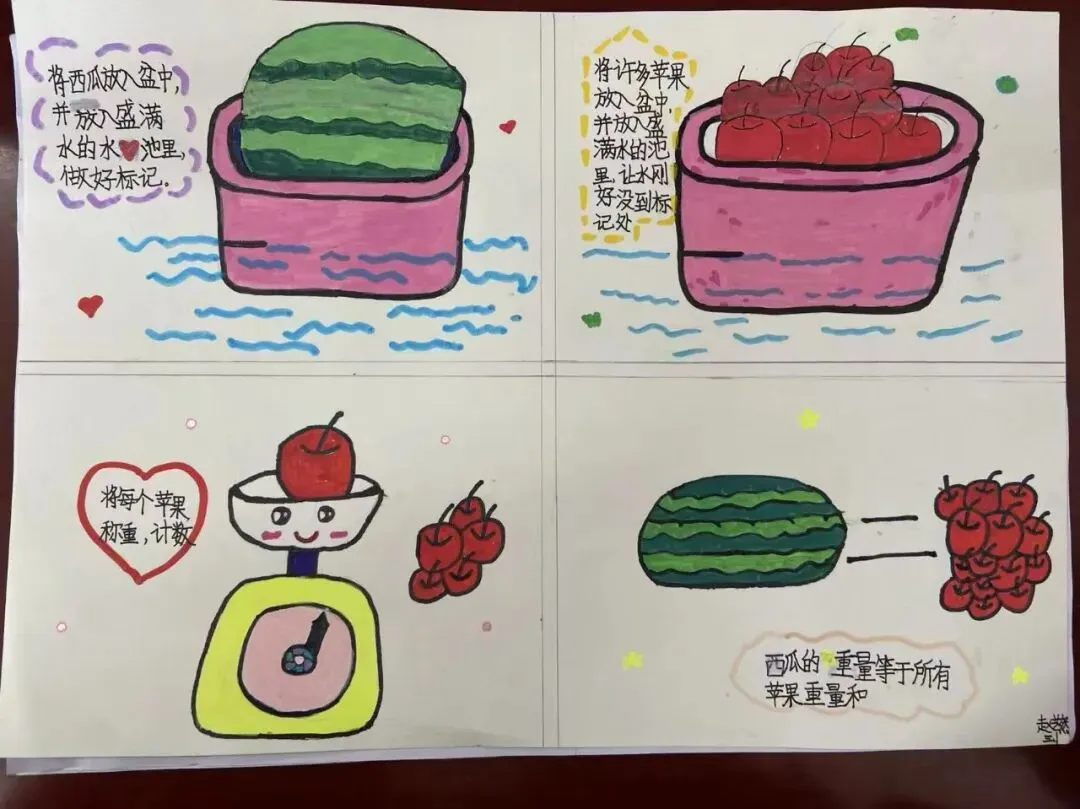 将西瓜放入盆中,
并放入盛满
水的水池里,
做好标记。
将许多苹果
放入盆中,
并放入盛
满水的池
里,让水刚
好没到标
记处
将每个苹果
称重,计数
西瓜的重量等于所有
苹果重量和